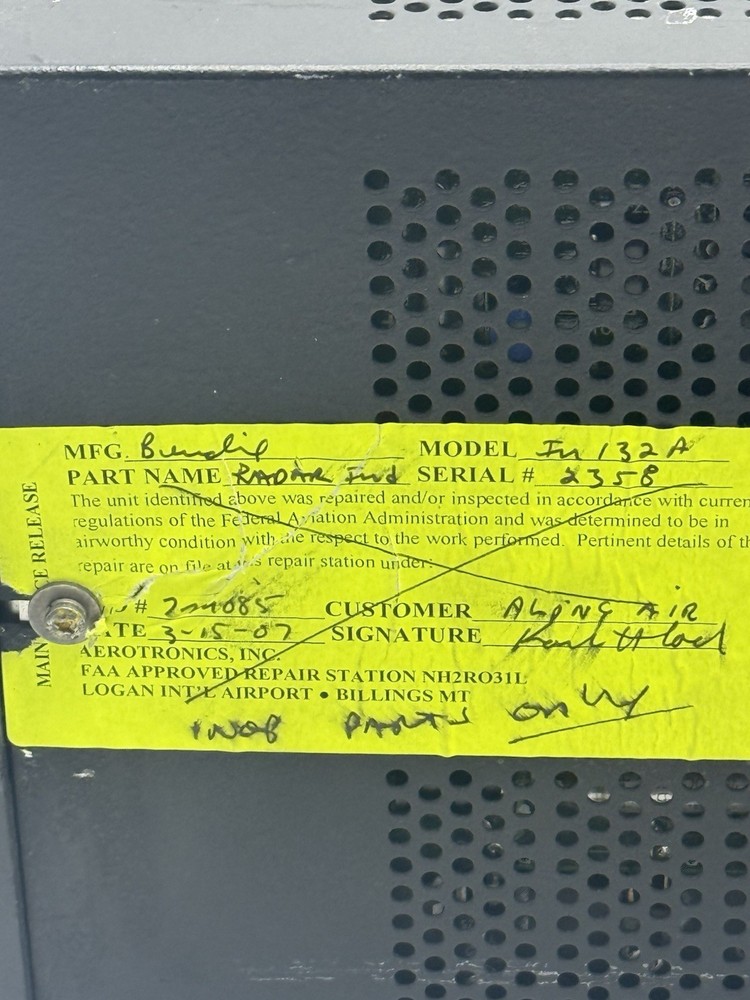 MFG. Bendix MODEL IN 132A
PART NAME RADAR Ind SERIAL # 2358
The unit identified above was repaired and/or inspected in accordance with curren
regulations of the Federal Aviation Administration and was determined to be in
airworthy condition with the respect to the work performed. Pertinent details of th
repair are on file at this repair station under:
# CUSTOMER AIR
ATE 3-15-07 SIGNATURE
AEROTRONICS, INC.
FAA APPROVED REPAIR STATION NH2RO31L
LOGAN INT'L AIRPORT • BILLINGS MT
INOP PARTS only
MAIN CE RELEASE